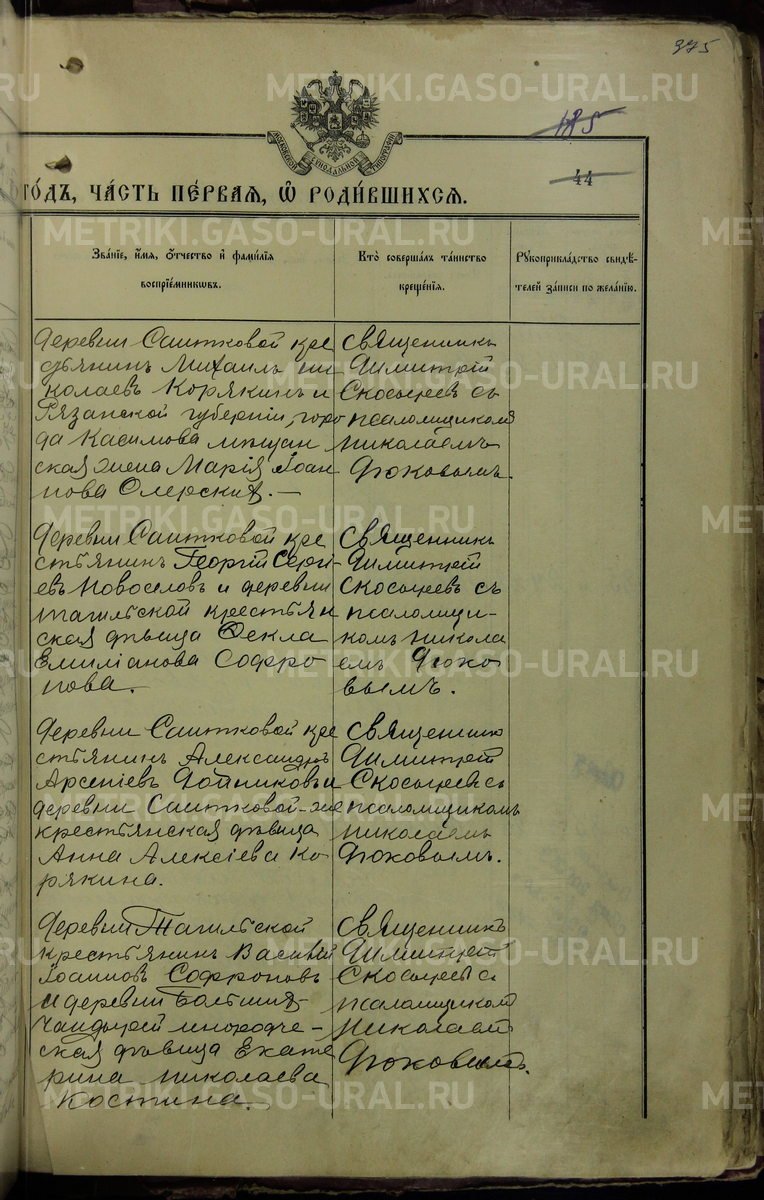 375
185
44
МОСКОВСКОЙ СѴНОДАЛЬНОЙ ТИПОГРАФІИ
ГО́ДЪ, ЧА́СТЬ ПЕ́РВАЯ, Ѡ҆ РОДИ́ВШИХСЯ.
Зва́ніе, и҆́мя, ѻ҆́тчество и҆ фами́лія
воспріе́мникѡвъ.
Кто̀ соверша́лъ та́инство
креще́нія.
Рꙋкоприкла́дство свидѣ́-
телей за́писи по жела́нію.
Деревни Саитковой кре
стьянинъ Михаилъ Ни
колаевъ Корякинъ и
Рязанской губерніи, горо
да Касимова мѣщан
ская жена Марія Іоан
нова
Священникъ
Димитрій
Скосыревъ съ
псаломщикомъ
Николаемъ
Дюковымъ.
Деревни Саитковой кре
стьянинъ Георгій Сергі-
евъ Новоселовъ и деревни
Тагильской крестьян
ская дѣвица Ѳекла
Емиліанова Софро
нова.
Священникъ
Димитрій
Скосыревъ съ
псаломщи-
комъ Никола
емъ Дюко
вымъ.
Деревни Саитковой кре
стьянинъ Александръ
Арсеніевъ Дойниковъ и
деревни Саитковой-же
крестьянская дѣвица
Анна Алексіева Ко
рякина.
Священникъ
Димитрій
Скосыревъ съ
псаломщикомъ
Николаемъ
Дюковымъ.
Деревни Тагильской
крестьянинъ Василій
Іоанновъ Софроновъ
и деревни Большия
инородче-
ская дѣвица Екате
рина Николаева
Костина.
Священникъ
Димитрій
Скосыревъ съ
псаломщикомъ
Николаемъ
Дюковымъ.
METRIKI.GASO-URAL.RU